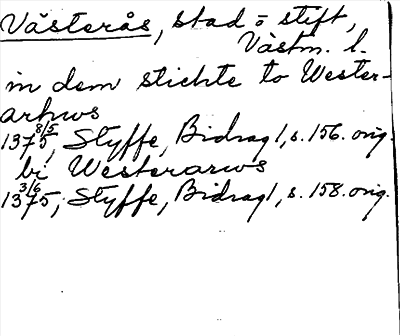 Västerås, stad o stift,
Västm. l.
in dem stichte to Wester-
arhws
1375 8/5, Styffe, Bidrag 1, s. 156. orig.
bi Westerarws
1375 3/6, Styffe, Bidrag 1, s. 158. orig.